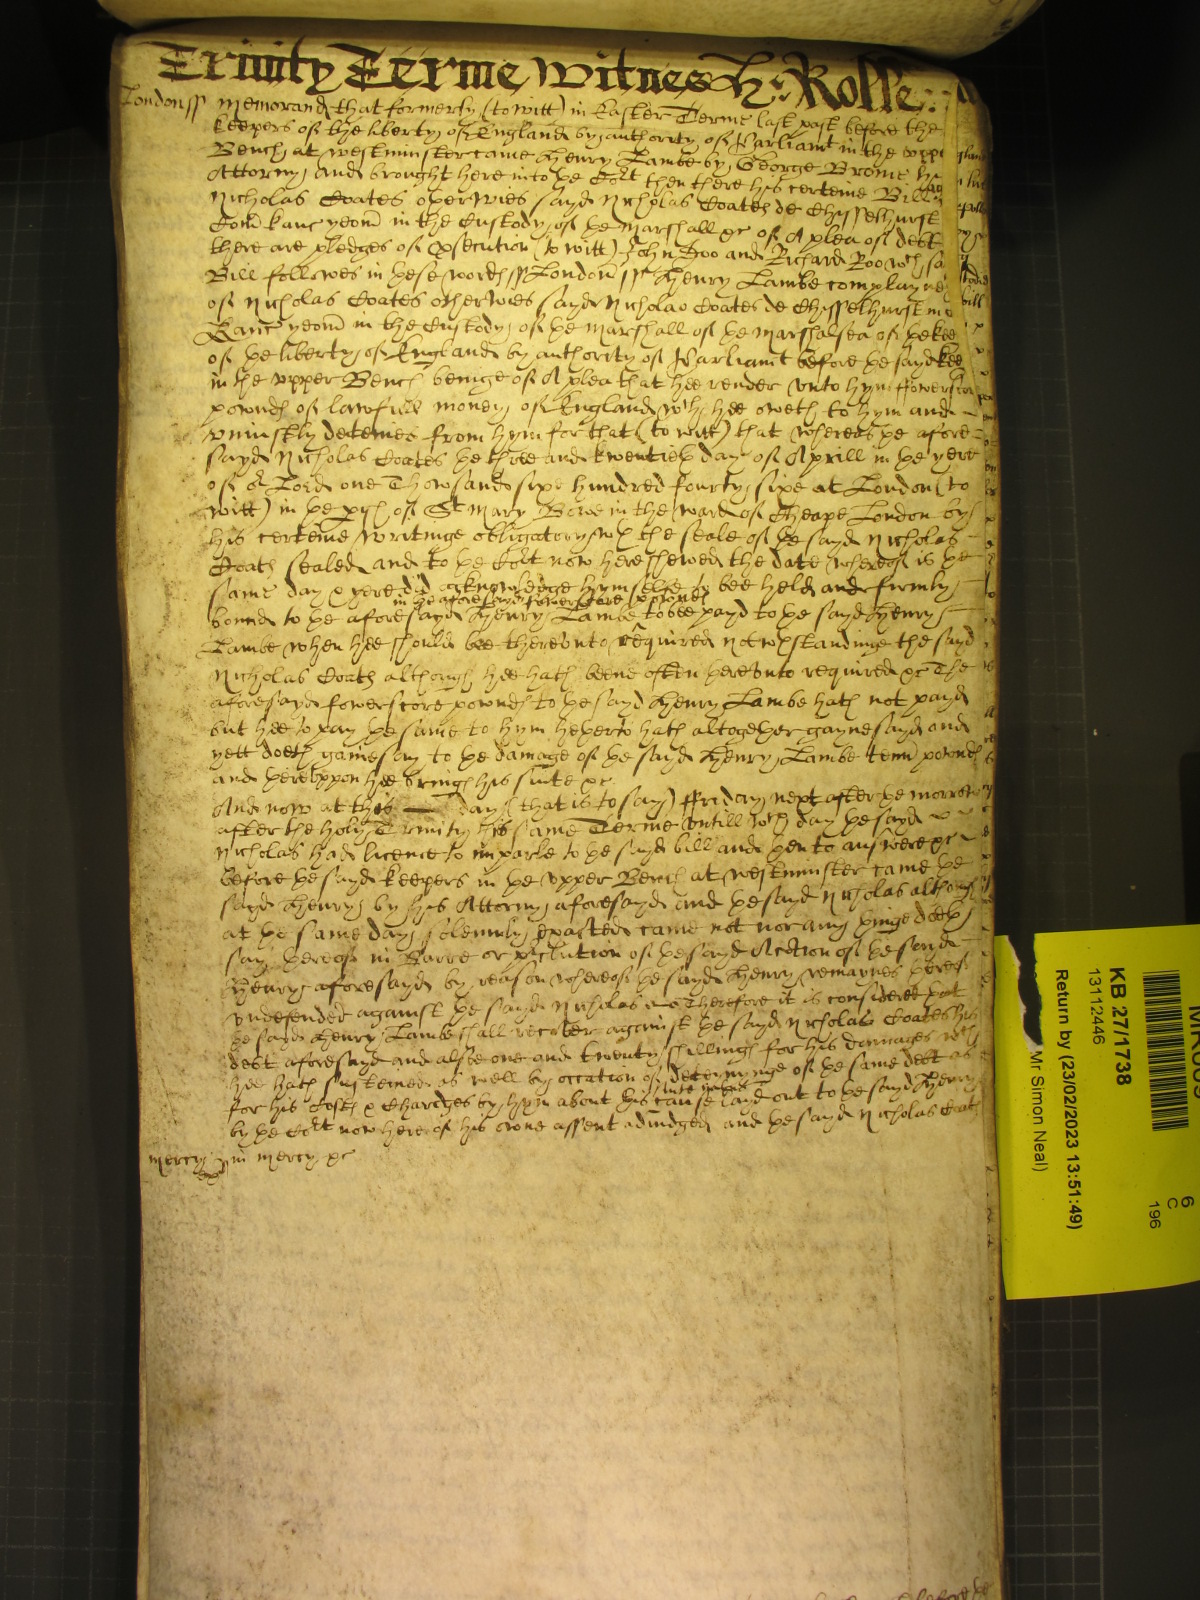 Trinity Terme Witnes H: Rolle
London ss Memorand that formerly (to witt) in Easter Terme last past before the
keepers of the liberty of England by authority of Parliamt in the upp
Bench at Westminster came Henry Lambe by George Brome his
Attorny and brought here into ye Cort then there his certeine Bill ag
Nicholas Coates otherwies sayd Nicholas Coates de Chisselhurst
Com Kanc yeom in the Custody of ye Marshall &c of A plea of debt
there are pledges of prsecution (to witt) John Doo and Richard Roo wch sa
Bill followes in these words ss London ss Henry Lambe complayne
of Nicholas Coates otherwies sayd Nicholas Coates de Chisselhurst in
Kanc yeom in the Custody of ye Marshall of ye Marshalsea of ye kee
of ye liberty of England by authority of Parliamt before ye sayd kee
in the upper Bench beinge of A plea that hee render unto hym ffowersco
pownds of lawfull money of England wch hee oweth to hym and
uniustly deteines from hym for that (to witt) that whereas ye afore
sayd Nicholas Coates ye three and twentieth day of Aprill in ye yere
of or Lord one Thowsand sixe hundred fourty sixe at London (to
witt) in ye prish of St Mary Bowe in the ward of Cheape London by
his certeine writinge obligatory wth the seale of ye sayd Nicholas
Coats sealed and to ye Cort now here shewed the date whereof is ye
same day & yere did acknowledge hymselfe to bee held and firmly
in ye aforesayd fowerscore pownds
bound to ye aforesayd Henry Lambe to bee payd to ye sayd Henry
Lambe when hee should bee thereunto required notwthstandinge the sayd
Nicholas Coats although hee hath beene often thereunto required &c The
aforesayd fowerscore pownds to ye sayd Henry Lambe hath not payd
but hee to pay ye same to hym hetherto hath altogether gaynesayd and
yett doeth gainesay to ye damage of ye sayd Henry Lambe tenn pownds
and thereuppon hee brings his suite &c
And now at this day (that is to say) ffriday next after ye morrow
after the Holy Trinity this same Terme untill wch day ye sayd
Nicholas had licence to imparle to ye sayd bill and then to answere &c
before ye sayd keepers in ye upper Bench at Westminster came ye
sayd Henry by his Attorny aforesayd and ye sayd Nicholas although
at ye same day solemnly exacted came not nor any thinge doeth
say thereof in Barre or prclution of ye sayd Action of ye sayd
Henry aforesayd by reason whereof ye sayd Henry remaines thereof
undefended against ye sayd Nicholas Therefore it is considered yat
ye sayd Henry Lambe shall recover against ye sayd Nicholas Coates his
debt aforesayd and alsoe one and twenty shillings for his damages wch
hee hath susteined as well by occation of deteyninge of ye same debt as
for his Costs & Chardges by hym about his suite in this cause layd out to ye sayd Henry
by ye Cort now here of his owne assent adiudged and ye sayd Nicholas Coats
mercy in mercy &c
KB 27/1738
13112446
Return by (23/02/2023 13:51:49)
Mr Simon Neal)
6
C
196